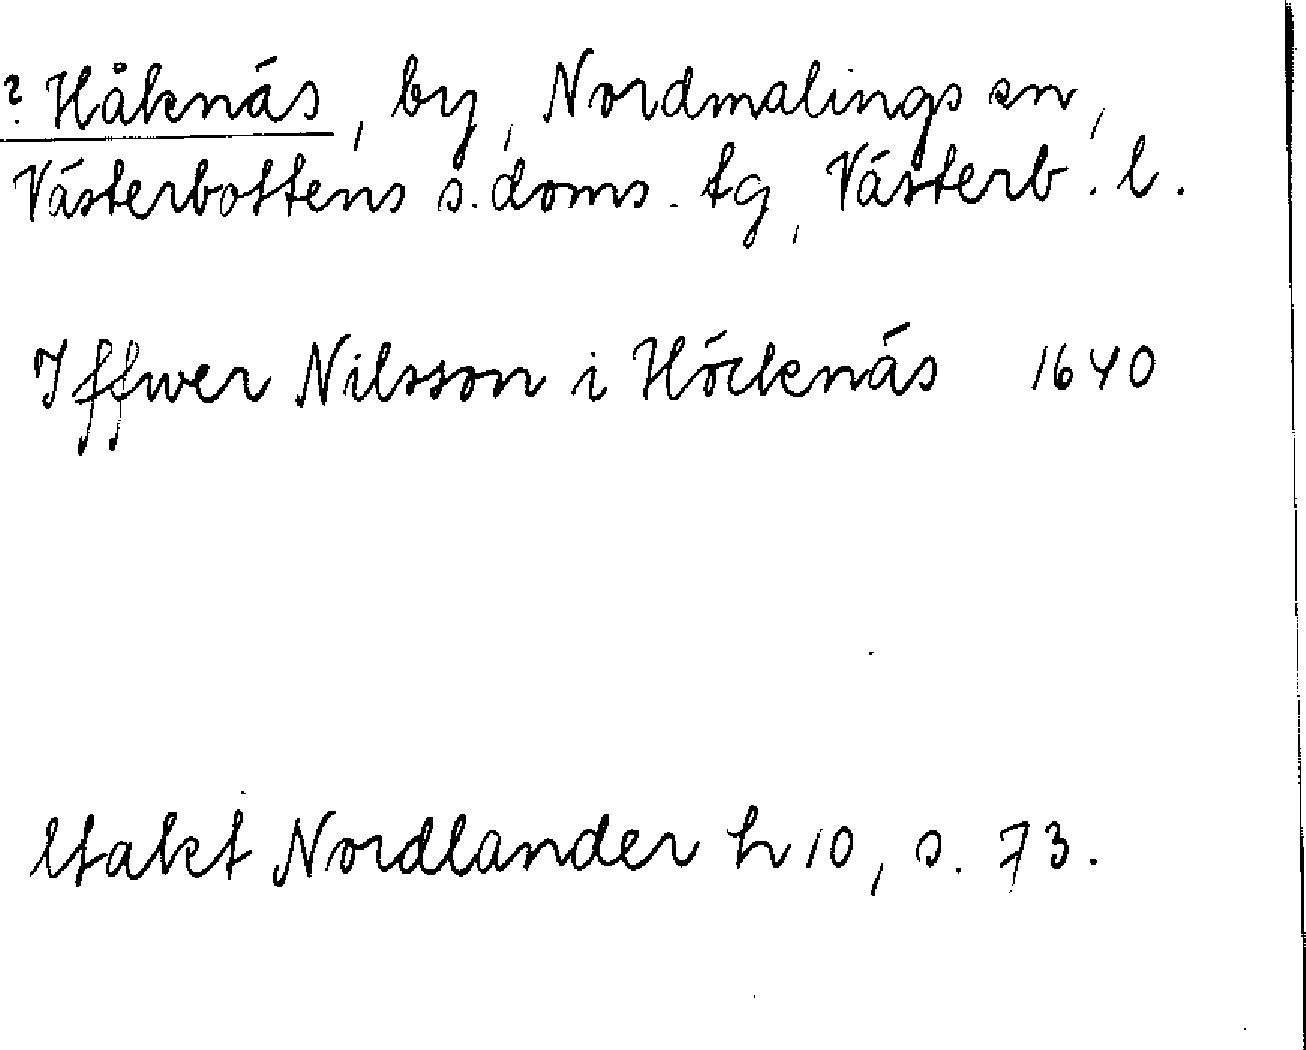 ? Håknäs, by, Nordmalings sn,
Västerbottens s. doms. tg, Västerb. l.
Iffwer Nilsson i Höcknäs 1640
Utakt Nordlander h 10, s. 73.